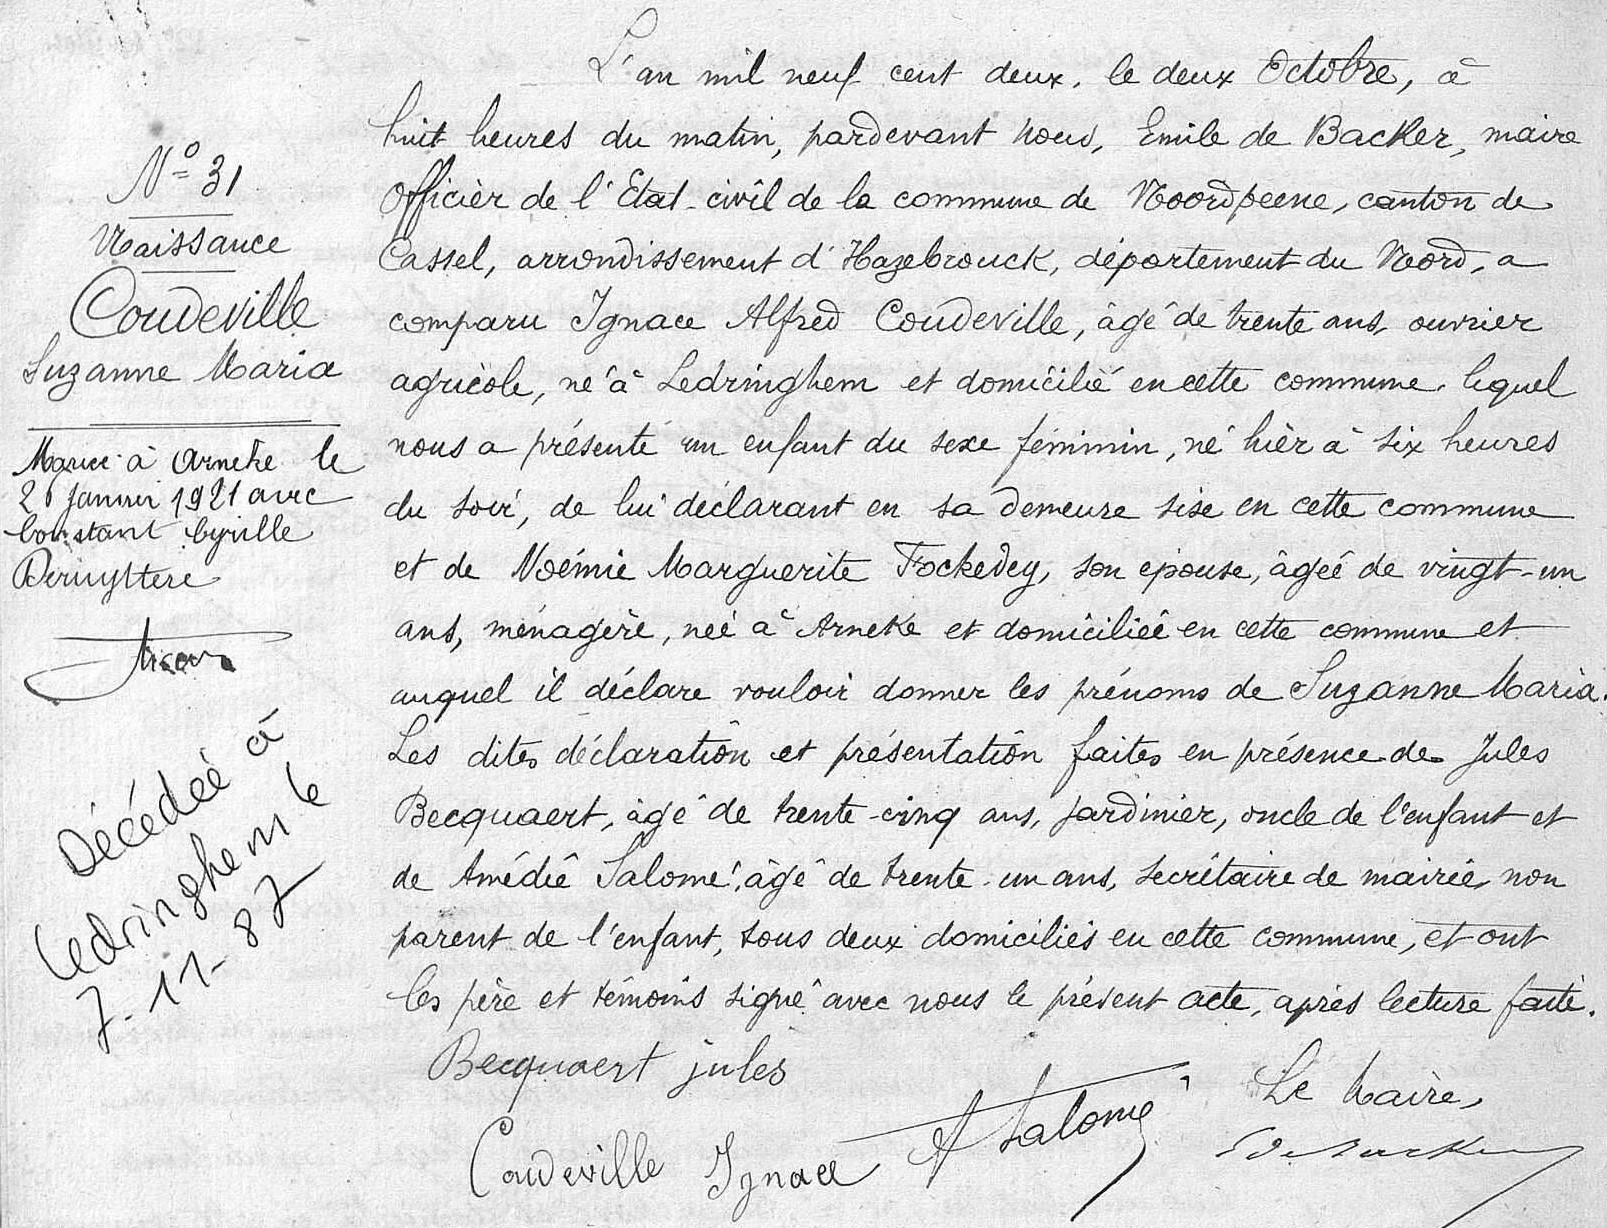 N° 31
Naissance
Coudeville
Suzanne Maria
Mariée à Arneke le
janvier 1921 avec
Constant Cyrille
Deruyttere
Décédée à
Ledringhem le
7-11-87
L'an mil neuf cent deux, le deux Octobre, à
huit heures du matin, pardevant Nous, Emile de Backer, maire
Officier de l'Etat-civil de la commune de Noordpeene, canton de
Cassel, arrondissement d'Hazebrouck, département du Nord, a
comparu Ignace Alfred Coudeville, âgé de trente ans, ouvrier
agricole, né à Ledringhem et domicilié en cette commune, lequel
nous a présenté un enfant du sexe féminin, né hier à six heures
du soir, de lui déclarant en sa demeure sise en cette commune
et de Noémie Marguerite Fockedey, son épouse, âgée de vingt-un
ans, ménagère, née à Arneke et domiciliée en cette commune et
auquel il déclare vouloir donner les prénoms de Suzanne Maria.
Les dites déclaration et présentation faites en présence de Jules
Becquaert, âgé de trente-cinq ans, jardinier, oncle de l'enfant et
de Amédée Salomé, âgé de trente-un ans, secrétaire de mairie, non
parent de l'enfant, tous deux domiciliés en cette commune, et ont
les père et témoins signé avec nous le présent acte, après lecture faite.
Becquaert jules
Le Maire,
A Salomé
Coudeville Ignace
E De Backer